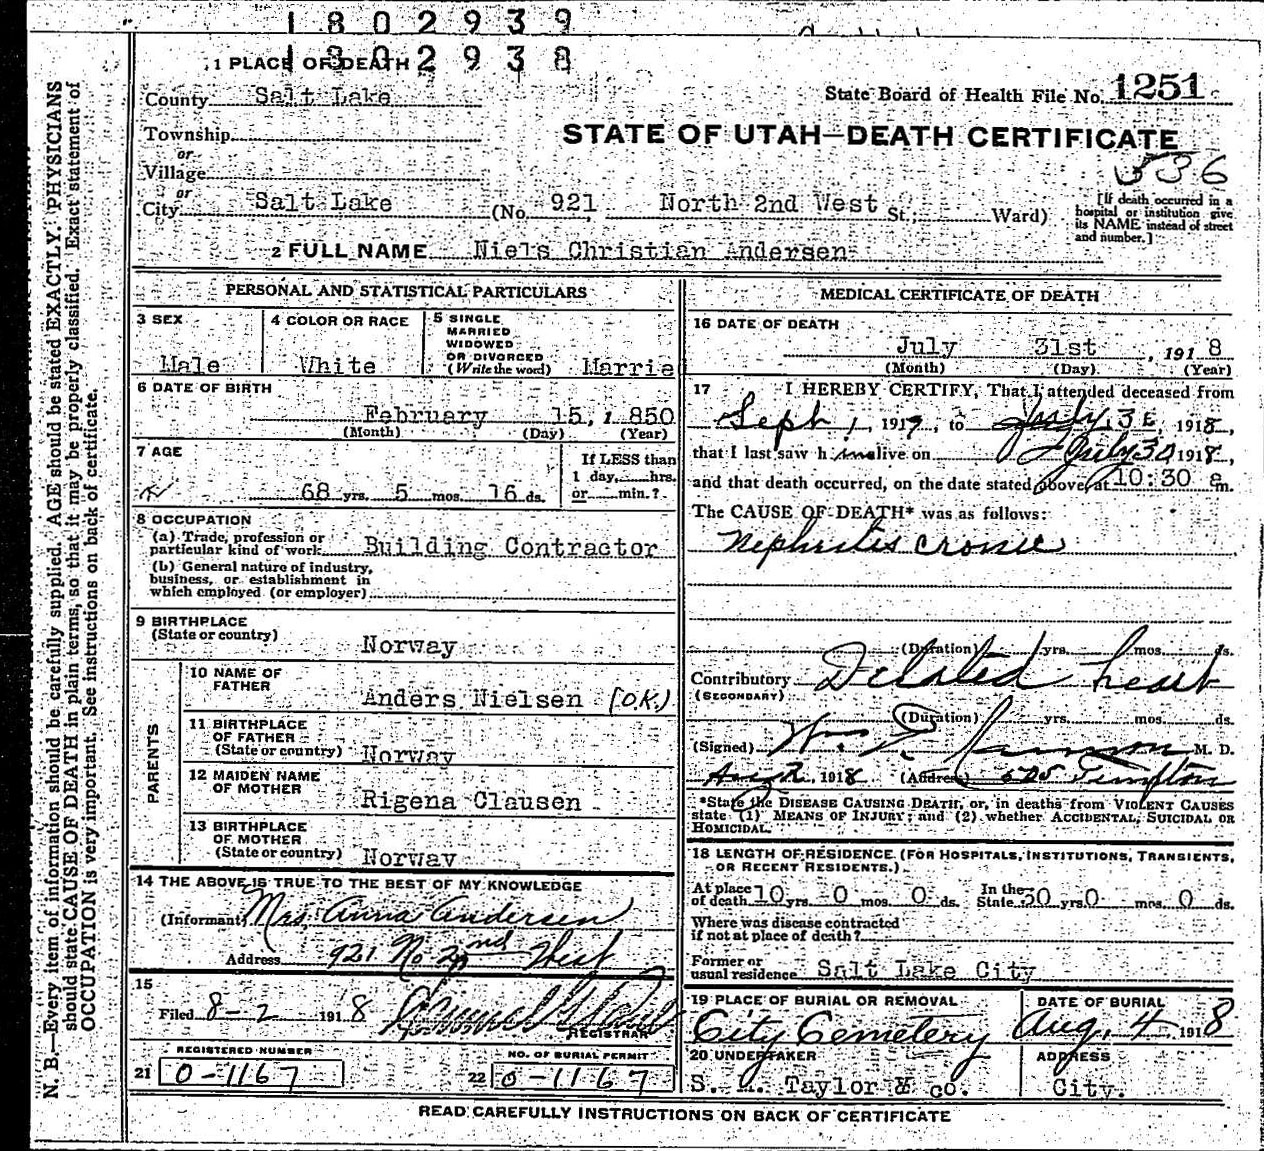 1802939
1802938
1 PLACE OF DEATH
County Salt Lake
State Board of Health File No. 1251
Township
or
Village
or
City Salt Lake
STATE OF UTAH—DEATH CERTIFICATE
536
(No. 921, North 2nd West St.; Ward)
[If death occurred in a
hospital or institution give
its NAME instead of street
and number.]
2 FULL NAME Niels Christian Andersen
PERSONAL AND STATISTICAL PARTICULARS
3 SEX
Male
4 COLOR OR RACE
White
5 SINGLE
MARRIED
WIDOWED
OR DIVORCED
(Write the word) Marrie
6 DATE OF BIRTH
February 15, 1850
(Month) (Day) (Year)
7 AGE
68 yrs. 5 mos. 16 ds.
If LESS than
1 day, hrs.
or min.?
8 OCCUPATION
(a) Trade, profession or
particular kind of work Building Contractor
(b) General nature of industry,
business, or establishment in
which employed (or employer)
9 BIRTHPLACE
(State or country) Norway
PARENTS
10 NAME OF
FATHER Anders Nielsen (O.K.)
11 BIRTHPLACE
OF FATHER
(State or country) Norway
12 MAIDEN NAME
OF MOTHER Rigena Clausen
13 BIRTHPLACE
OF MOTHER
(State or country) Norway
14 THE ABOVE IS TRUE TO THE BEST OF MY KNOWLEDGE
(Informant) Mrs. Anna Andersen
Address 921 No 2nd West
15
Filed 8-2 1918
REGISTRAR
REGISTERED NUMBER
21 0-1167
NO. OF BURIAL PERMIT
22 0-1167
MEDICAL CERTIFICATE OF DEATH
16 DATE OF DEATH
July 31st, 1918
(Month) (Day) (Year)
17 I HEREBY CERTIFY, That I attended deceased from
Sept 1, 1917, to July 31, 1918,
that I last saw him alive on July 30 1918,
and that death occurred, on the date stated above, at 10:30 a m.
The CAUSE OF DEATH* was as follows:
Nephritis cronic
(Duration) yrs. mos. ds.
Contributory Dilated heart
(SECONDARY)
(Duration) yrs. mos. ds.
(Signed) Wm M. D.
Aug 2, 1918 (Address) Templton
*State the DISEASE CAUSING DEATH, or, in deaths from VIOLENT CAUSES
state (1) MEANS OF INJURY; and (2) whether ACCIDENTAL, SUICIDAL OR
HOMICIDAL.
18 LENGTH OF RESIDENCE (FOR HOSPITALS, INSTITUTIONS, TRANSIENTS,
OR RECENT RESIDENTS.)
At place
of death 10 yrs. 0 mos. 0 ds. In the
State 30 yrs. 0 mos. 0 ds.
Where was disease contracted
if not at place of death?
Former or
usual residence Salt Lake City
19 PLACE OF BURIAL OR REMOVAL
City Cemetery
DATE OF BURIAL
Aug. 4 1918
20 UNDERTAKER
S. Taylor & co.
ADDRESS
City.
READ CAREFULLY INSTRUCTIONS ON BACK OF CERTIFICATE
N. B.—Every item of information should be carefully supplied. AGE should be stated EXACTLY. PHYSICIANS
should state CAUSE OF DEATH in plain terms, so that it may be properly classified. Exact statement of
OCCUPATION is very important. See instructions on back of certificate.